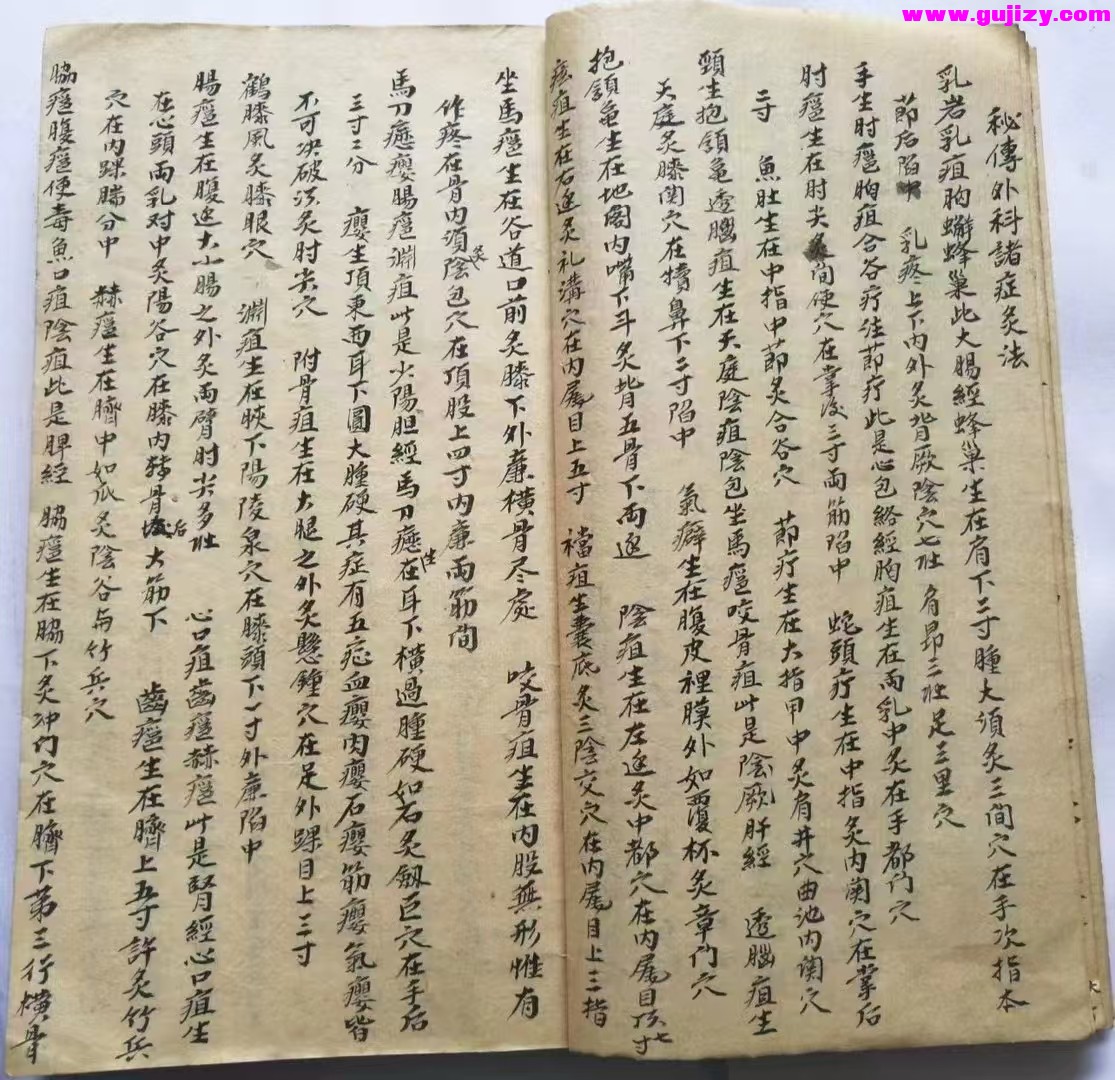 www.gujizy.com
秘傳外科諸症灸法
乳岩乳疽胸蠏蜂巢此大腸經蜂巢生在肩下二寸腫大須灸三間穴在手次指本
節后陷中 乳疼上下內外灸背厥陰穴七壯 肩昂三壯足三里穴
手生肘癰胸疽合谷疔注節疔此是心包絡經胸疽生在兩乳中灸在手都門穴
肘癰生在肘尖灸間使穴在掌後三寸兩筋陷中 蛇頭疔生在中指灸內関穴在掌后
二寸 魚肚生在中指中節灸合谷穴 節疔生在大指甲中灸肩井穴曲池內関穴
頸生抱頷龜透腦疽生在天庭陰疽陰包坐馬癰咬骨疽此是陰厥肝經 透腦疽生
天庭灸膝関穴在犢鼻下二寸陷中 氣癖生在腹皮裡膜外如覆杯灸章門穴
抱頷龜生在地閣內嘴下斗灸背五骨下兩边 陰疽生在左边灸中都穴在內尾目頂七寸
痃疽生在右边灸礼溝穴在內尾目上五寸 襠疽生囊底灸三陰交穴在內尾目上三指
坐馬癰生在谷道口前灸膝下外廉橫骨尽處 咬骨疽生在內股無形惟有
作疼在骨內須灸陰包穴在頂股上四寸內廉兩筋間
馬刀癧癭腸癰淵疽此是少陽胆經馬刀癧生在耳下橫過腫硬如石灸劔巨穴在手后
三寸二分 癭生頂東西耳下圓大腫硬其症有五症血癭肉癭石癭筋癭氣癭皆
不可決破法灸肘尖穴 附骨疽生在大腿之外灸懸鍾穴在足外踝目上三寸
鶴膝風灸膝眼穴 淵疽生在脥下陽陵泉穴在膝頭下一寸外廉陷中
腸癰生在腹边大小腸之外灸兩臂肘尖多壯 心口疽齒癰赫癰此是腎經心口疽生
在心頭兩乳对中灸陽谷穴在膝內輔骨后大筋下 齒癰生在臍上五寸許灸竹兵
穴在內踝腨分中 赫癰生在臍中如瓜灸陰谷与竹兵穴
脇癰腹癰便毒魚口疽陰疽此是脾經 脇癰生在脇下灸冲门穴在臍下第三行橫骨